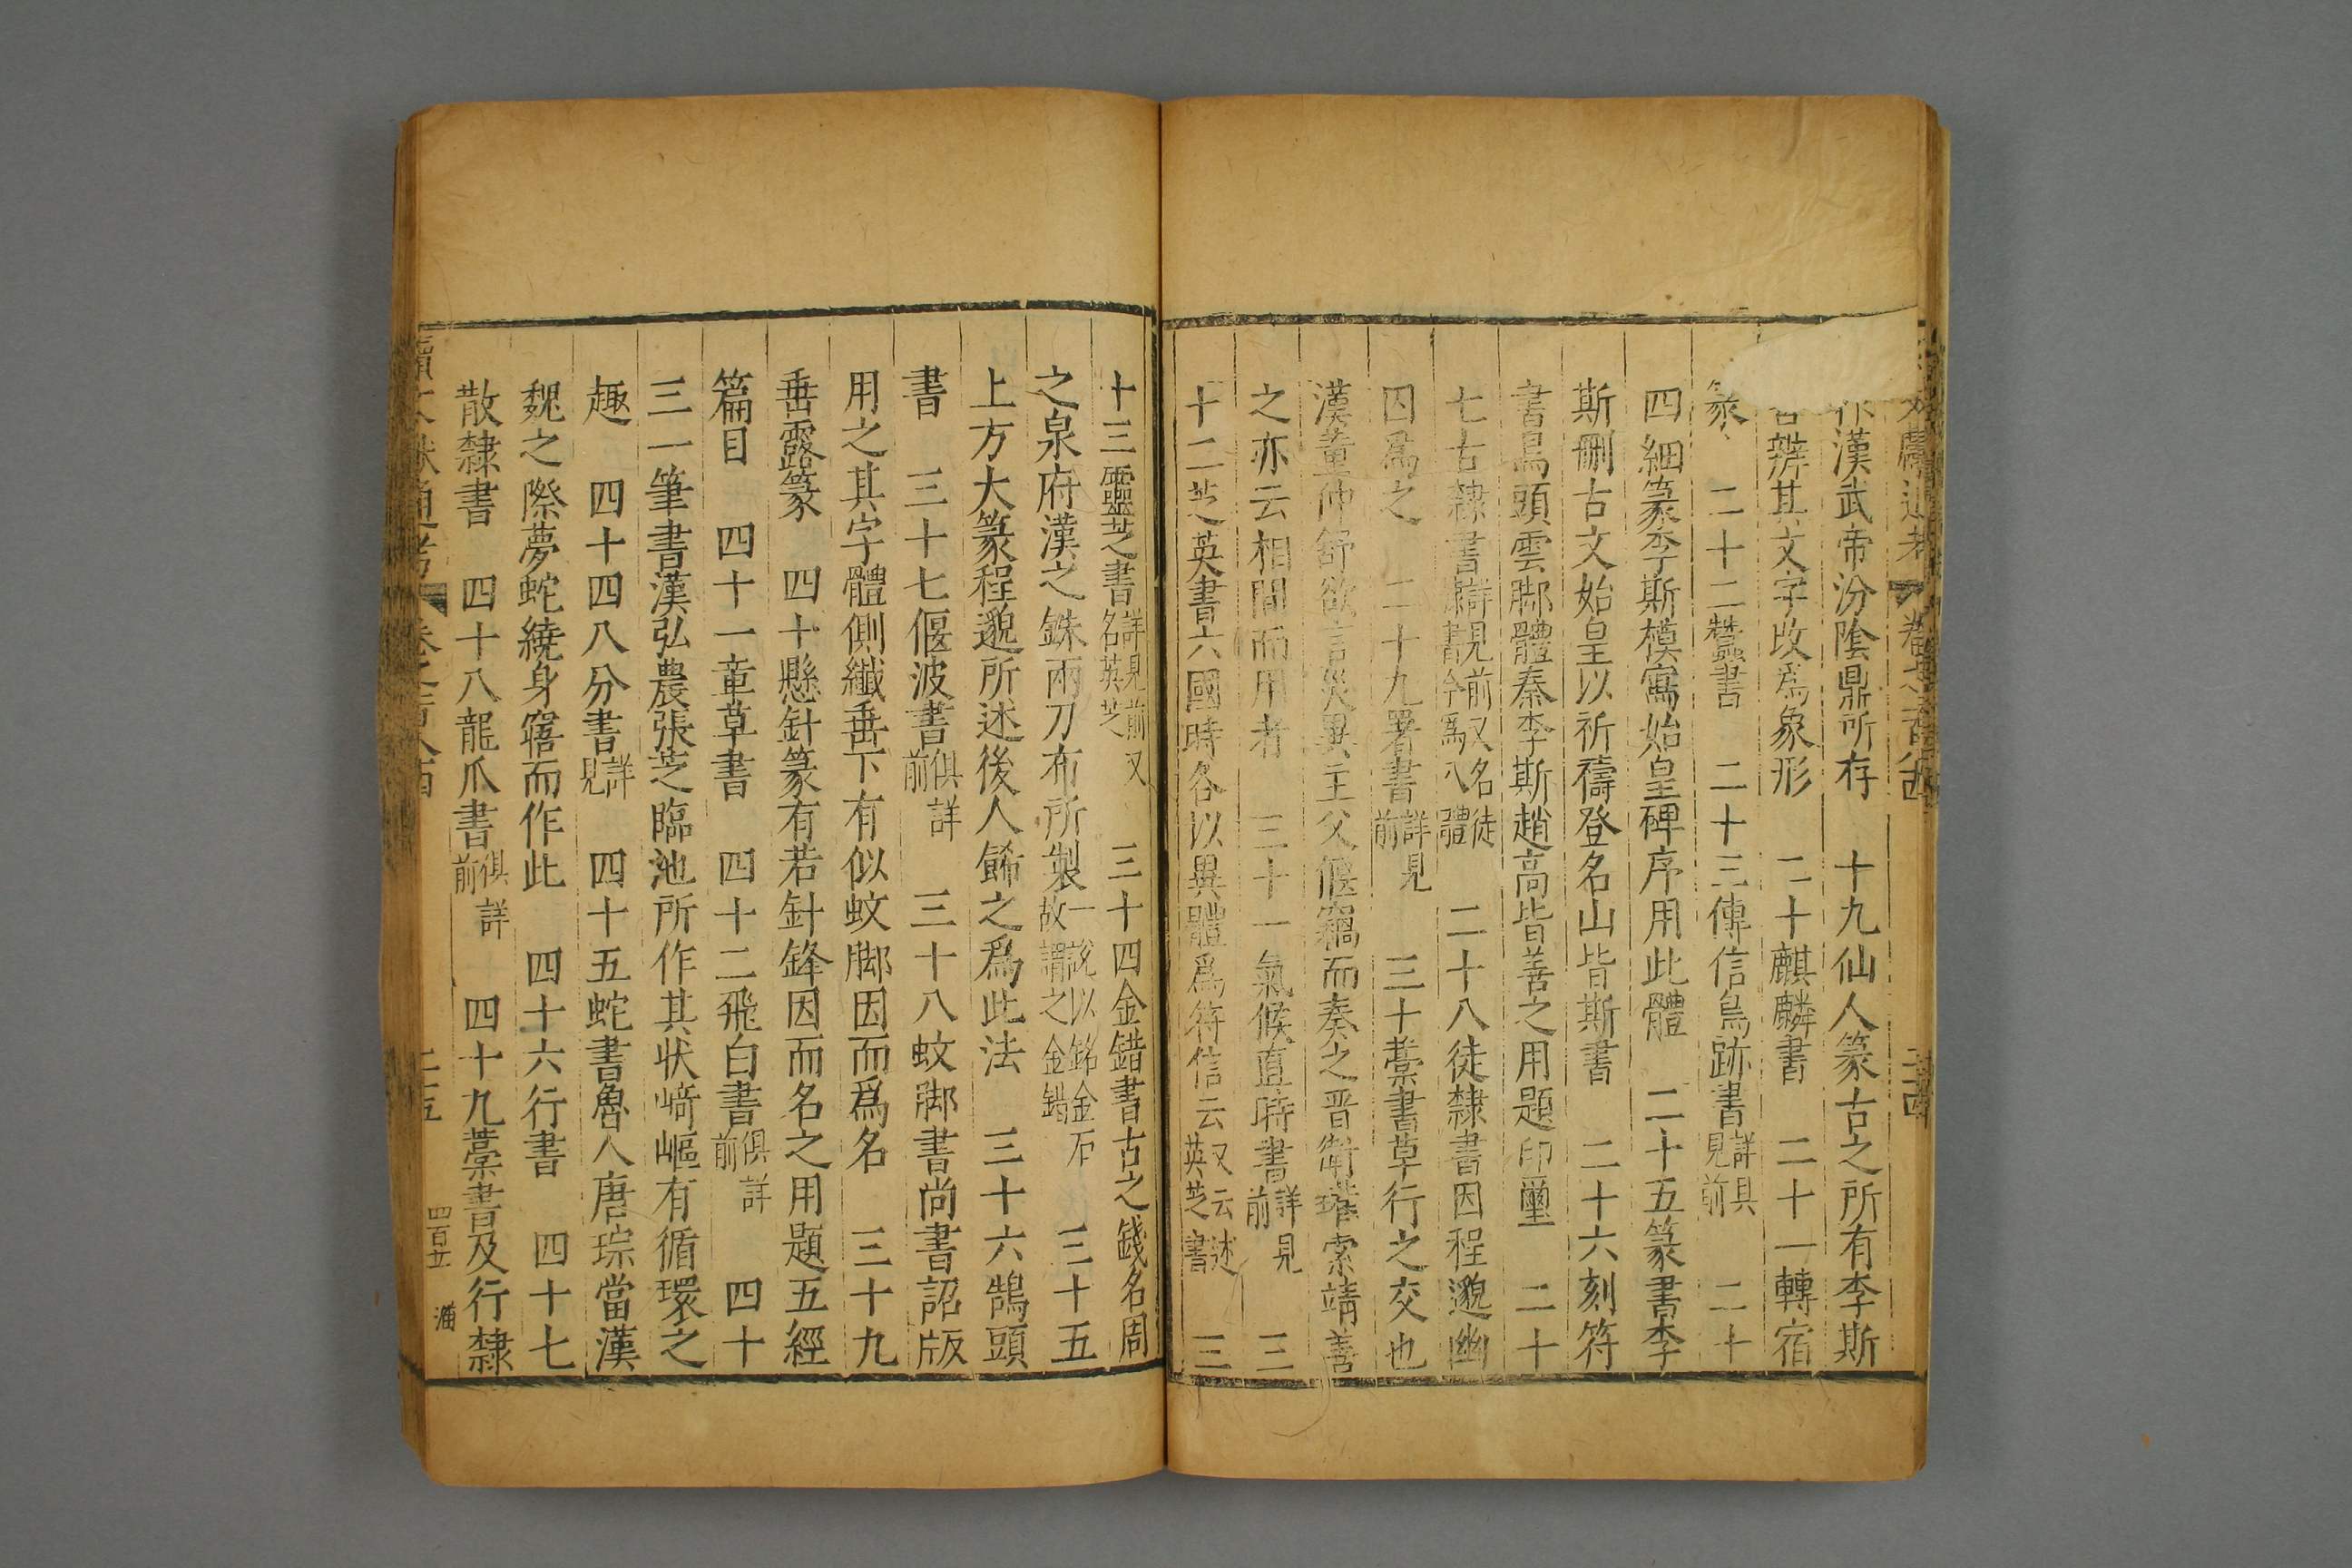 漢武帝汾陰鼎所存　十九仙人篆古之所有李斯
辨其文字改爲象形　二十麒麟書　二十一轉宿
篆　二十二蠶書　二十三傳信鳥跡書詳具見前　二十
四細篆李斯模寫始皇碑序用此體　二十五篆書李
斯刪古文始皇以祈禱登名山皆斯書　二十六刻符
書鳥頭雲脚體秦李斯趙高皆善之用題印璽　二十
七古隸書詳見前又名徒隸書今爲八體　二十八徒隸書因程邈幽
囚爲之　二十九署書詳見前　三十藁書草行之交也
漢董仲舒欲言災異主父偃竊而奏之晉衛瓘索靖善
之亦云相間而用者　三十一氣候直時書詳見前　三
十二芝英書六國時各以異體爲符信云又云述英芝書　三
十三靈芝書詳見前又名英芝　三十四金錯書古之錢名周
之泉府漢之銖兩刀布所製一說以銘金石故謂之金錯　三十五
上方大篆程邈所述後人餙之爲此法　三十六鵠頭
書　三十七偃波書俱詳前　三十八蚊脚書尚書詔版
用之其字體側纖垂下有似蚊脚因而爲名　三十九
垂露篆　四十懸針篆有若針鋒因而名之用題五經
篇目　四十一章草書　四十二飛白書俱詳前　四十
三一筆書漢弘農張芝臨池所作其狀崎嶇有循環之
趣　四十四八分書詳見　四十五蛇書魯人唐琮當漢
魏之際夢蛇繞身寤而作此　四十六行書　四十七
散隸書　四十八龍爪書俱詳前　四十九藁書及行隸